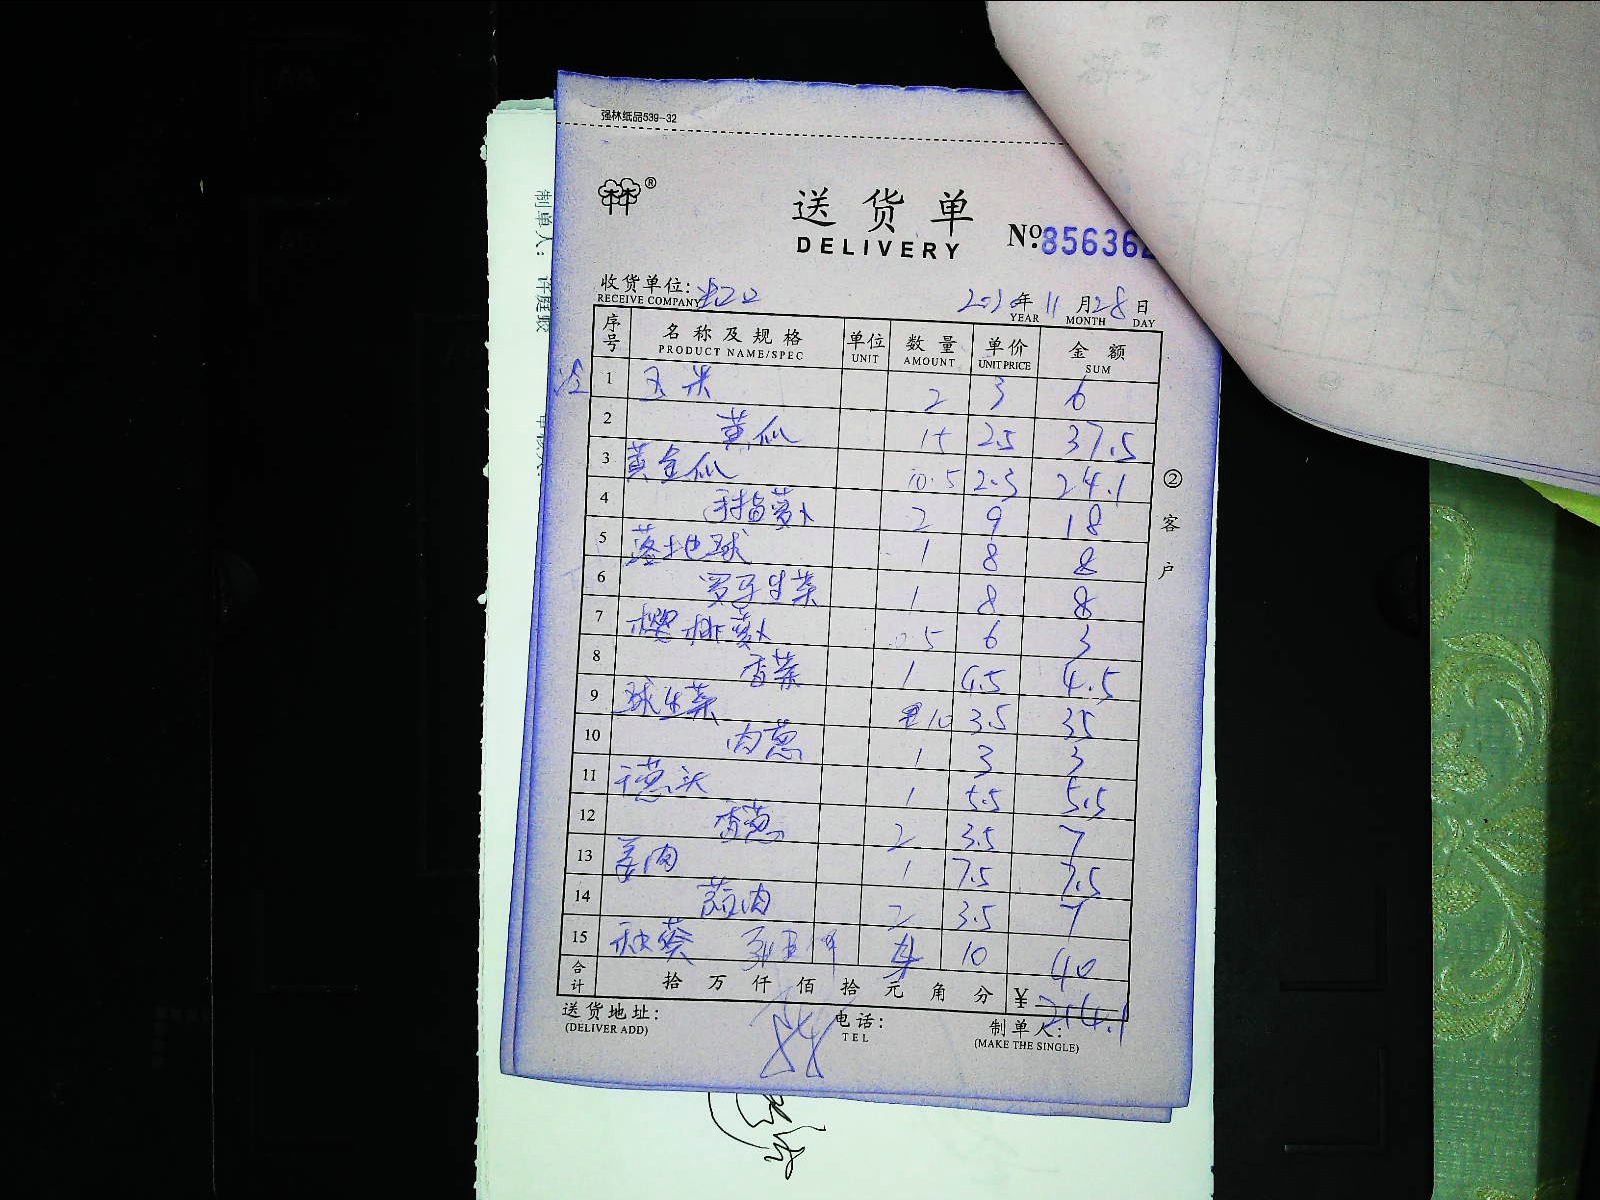 强林纸品539-32
林林®
送货单
DELIVERY
Nº:856362
收货单位:
RECEIVE COMPANY
2020年11月28日
YEAR MONTH DAY
序号 名称及规格 单位 数量 单价 金额
PRODUCT NAME/SPEC UNIT AMOUNT UNIT PRICE SUM
1 玉米 2 3 6
2 黄瓜 15 2.5 37.5
3 黄金瓜 10.5 2.3 24.1
4 手指萝卜 2 9 18
5 落地球 1 8 8
6 罗马生菜 1 8 8
7 樱桃萝卜 0.5 6 3
8 香菜 1 4.5 4.5
9 球生菜 10 3.5 35
10 肉葱 1 3 3
11 干葱头 1 5.5 5.5
12 香葱 2 3.5 7
13 姜肉 1 7.5 7.5
14 蒜肉 2 3.5 7
15 秋葵 4 10 40
合计 拾万仟佰拾元角分 ¥214.1
送货地址: 电话: 制单人:
(DELIVER ADD) TEL (MAKE THE SINGLE)
②客户
制单人: 许庭毅